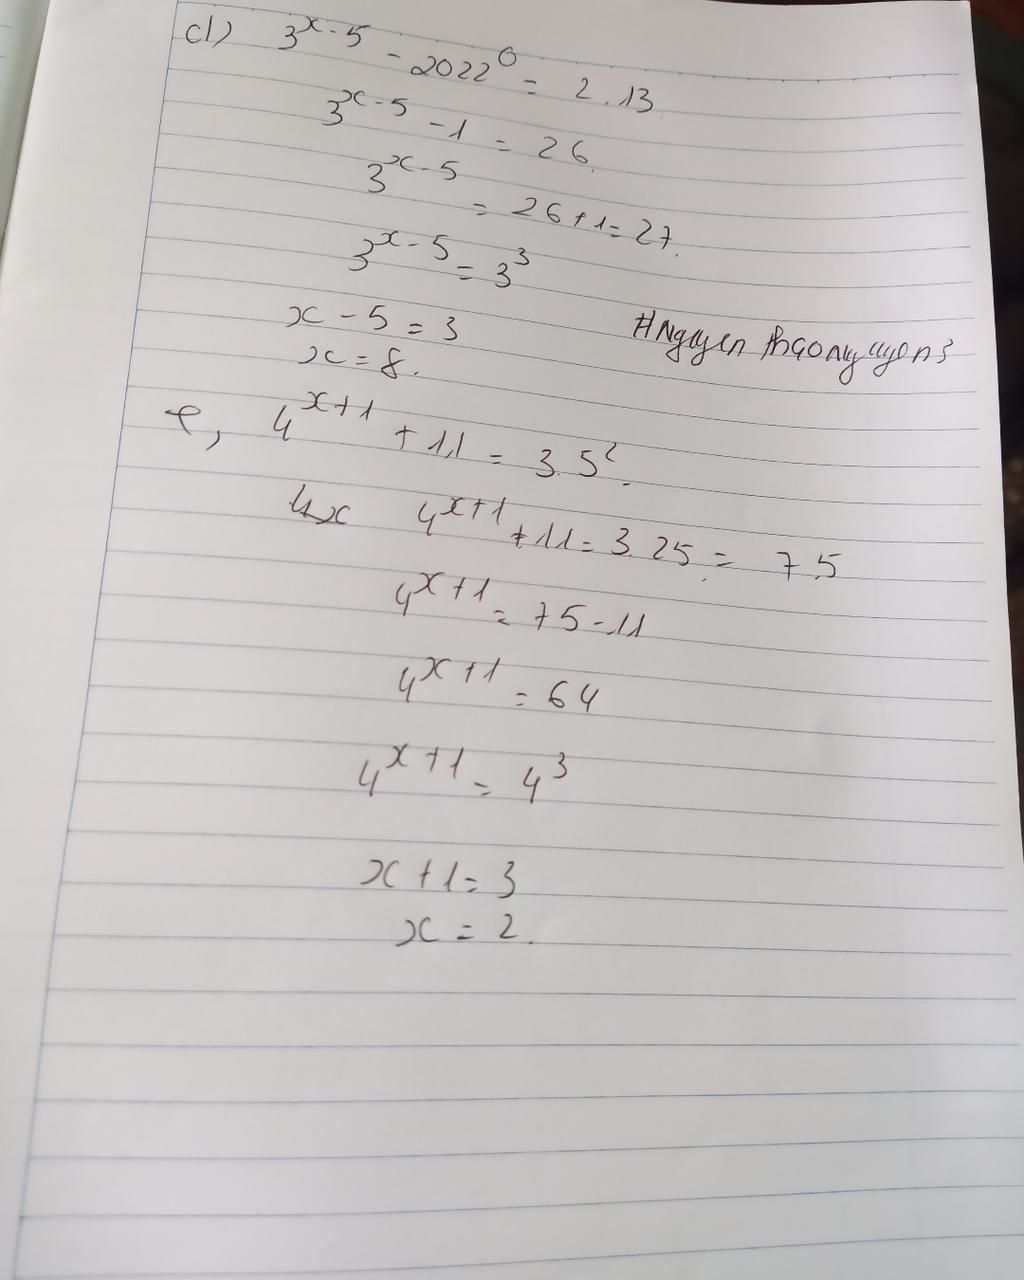 d) 3^{x-5} - 2022^0 = 2.13
3^{x-5} - 1 = 26
3^{x-5} = 26+1 = 27.
3^{x-5} = 3^3
x - 5 = 3
x = 8.
#Nguyen
e, 4^{x+1} + 11 = 3.5^2.
4^{x+1} + 11 = 3.25 = 75
4^{x+1} = 75-11
4^{x+1} = 64
4^{x+1} = 4^3
x+1 = 3
x = 2.